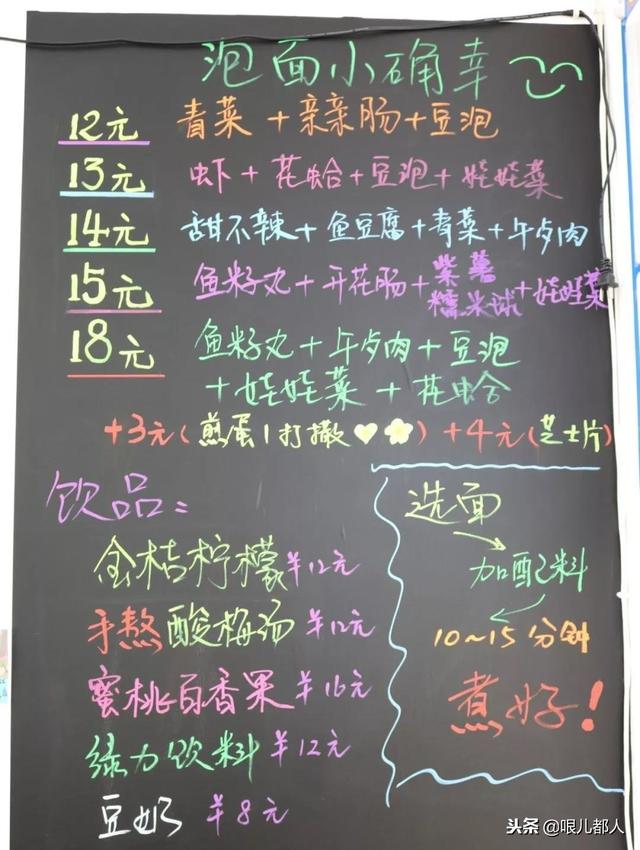 泡面小确幸
12元 青菜+亲亲肠+豆泡
13元 虾+花蛤+豆泡+娃娃菜
14元 甜不辣+鱼豆腐+青菜+午歺肉
15元 鱼籽丸+开花肠+紫薯糯米球+娃娃菜
18元 鱼籽丸+午歺肉+豆泡
+娃娃菜+花蛤
+3元(煎蛋1打撒) +4元(芝士片)
饮品:
金桔柠檬 ¥12元
手熬酸梅汤 ¥12元
蜜桃百香果 ¥16元
绿力饮料 ¥12元
豆奶 ¥8元
选面
加配料
10~15分钟
煮好!
头条 @哏儿都人